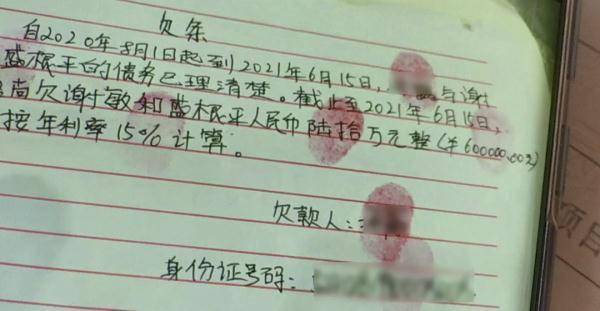 欠条
自2020年8月1日起到2021年6月15日，与谢
盛根平的债务已理清楚。截止至2021年6月15日，
尚欠谢敏和盛根平人民币陆拾万元整(￥600000.00元)
按年利率15%计算。
欠款人：
身份证号码：
项目